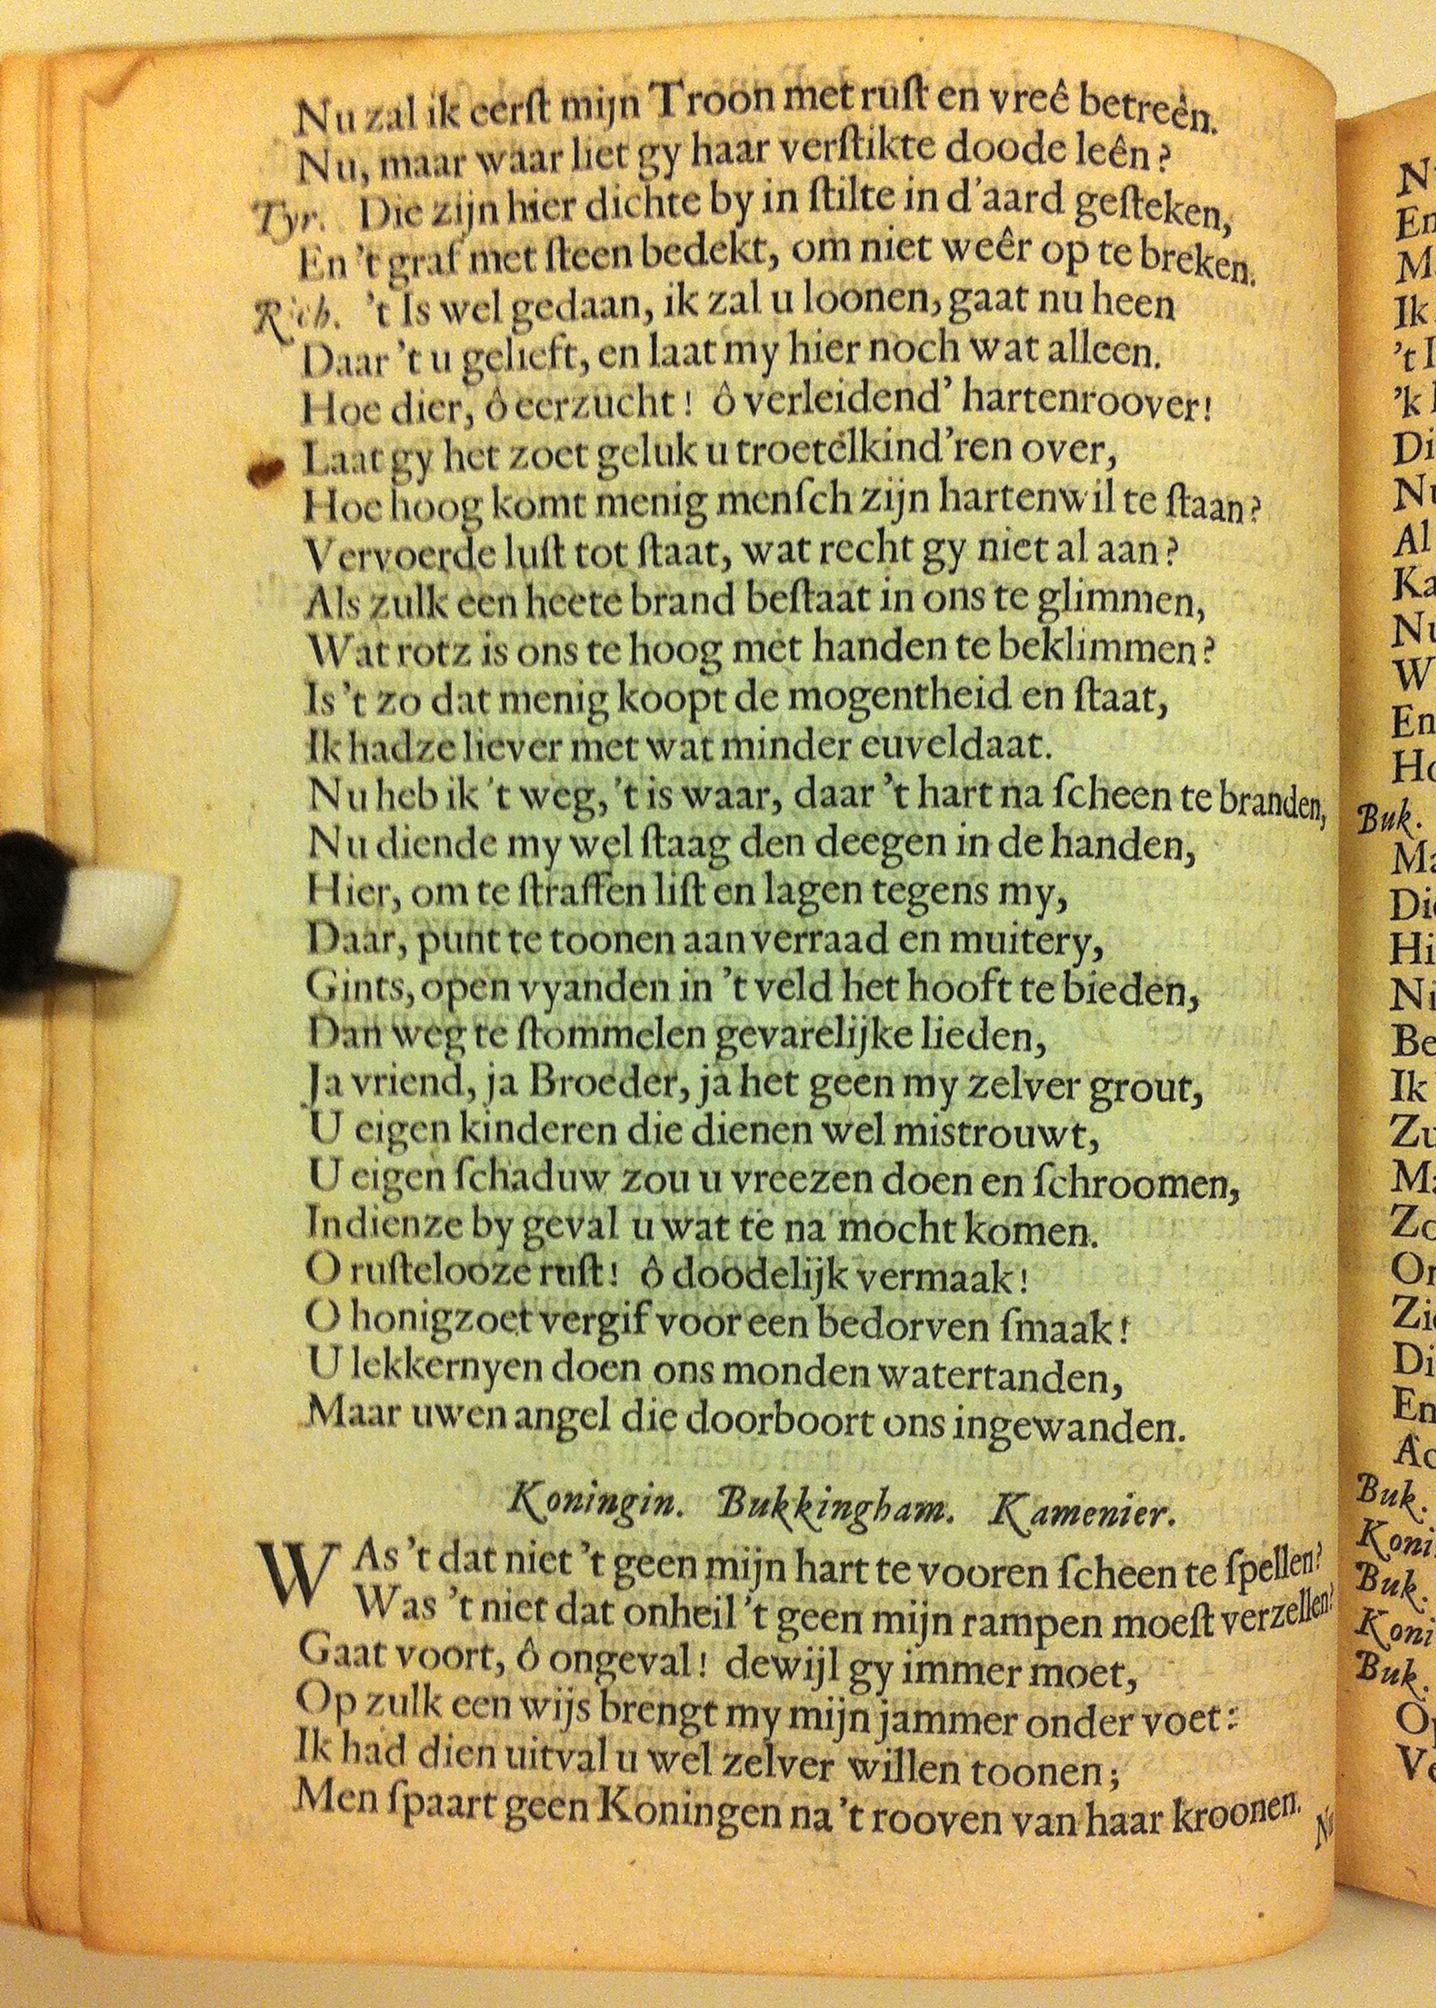 Nu zal ik eerſt mijn Troon met ruſt en vreê betreên.
Nu, maar waar liet gy haar verſtikte doode leên?
Tyr. Die zijn hier dichte by in ſtilte in d'aard geſteken,
En 't graf met ſteen bedekt, om niet weêr op te breken.
Rich. 't Is wel gedaan, ik zal u loonen, gaat nu heen
Daar 't u gelieft, en laat my hier noch wat alleen.
Hoe dier, ô eerzucht! ô verleidend' hartenroover!
Laat gy het zoet geluk u troetelkind'ren over,
Hoe hoog komt menig menſch zijn hartenwil te ſtaan?
Vervoerde luſt tot ſtaat, wat recht gy niet al aan?
Als zulk een heete brand beſtaat in ons te glimmen,
Wat rotz is ons te hoog met handen te beklimmen?
Is 't zo dat menig koopt de mogentheid en ſtaat,
Ik hadze liever met wat minder euveldaat.
Nu heb ik 't weg, 't is waar, daar 't hart na ſcheen te branden,
Nu diende my wel ſtaag den deegen in de handen,
Hier, om te ſtraffen liſt en lagen tegens my,
Daar, punt te toonen aan verraad en muitery,
Gints, open vyanden in 't veld het hooft te bieden,
Dan weg te ſtommelen gevarelijke lieden,
Ja vriend, ja Broeder, ja het geen my zelver grout,
U eigen kinderen die dienen wel mistrouwt,
U eigen ſchaduw zou u vreezen doen en ſchroomen,
Indienze by geval u wat te na mocht komen.
O ruſtelooze ruſt! ô doodelijk vermaak!
O honigzoet vergif voor een bedorven ſmaak!
U lekkernyen doen ons monden watertanden,
Maar uwen angel die doorboort ons ingewanden.
Koningin. Bukkingham. Kamenier.
WAs 't dat niet 't geen mijn hart te vooren ſcheen te ſpellen?
Was 't niet dat onheil 't geen mijn rampen moeſt verzellen?
Gaat voort, ô ongeval! dewijl gy immer moet,
Op zulk een wijs brengt my mijn jammer onder voet:
Ik had dien uitval u wel zelver willen toonen;
Men ſpaart geen Koningen na 't rooven van haar kroonen.
Buk.
Buk.
Koni
Buk.
Koni
Buk.